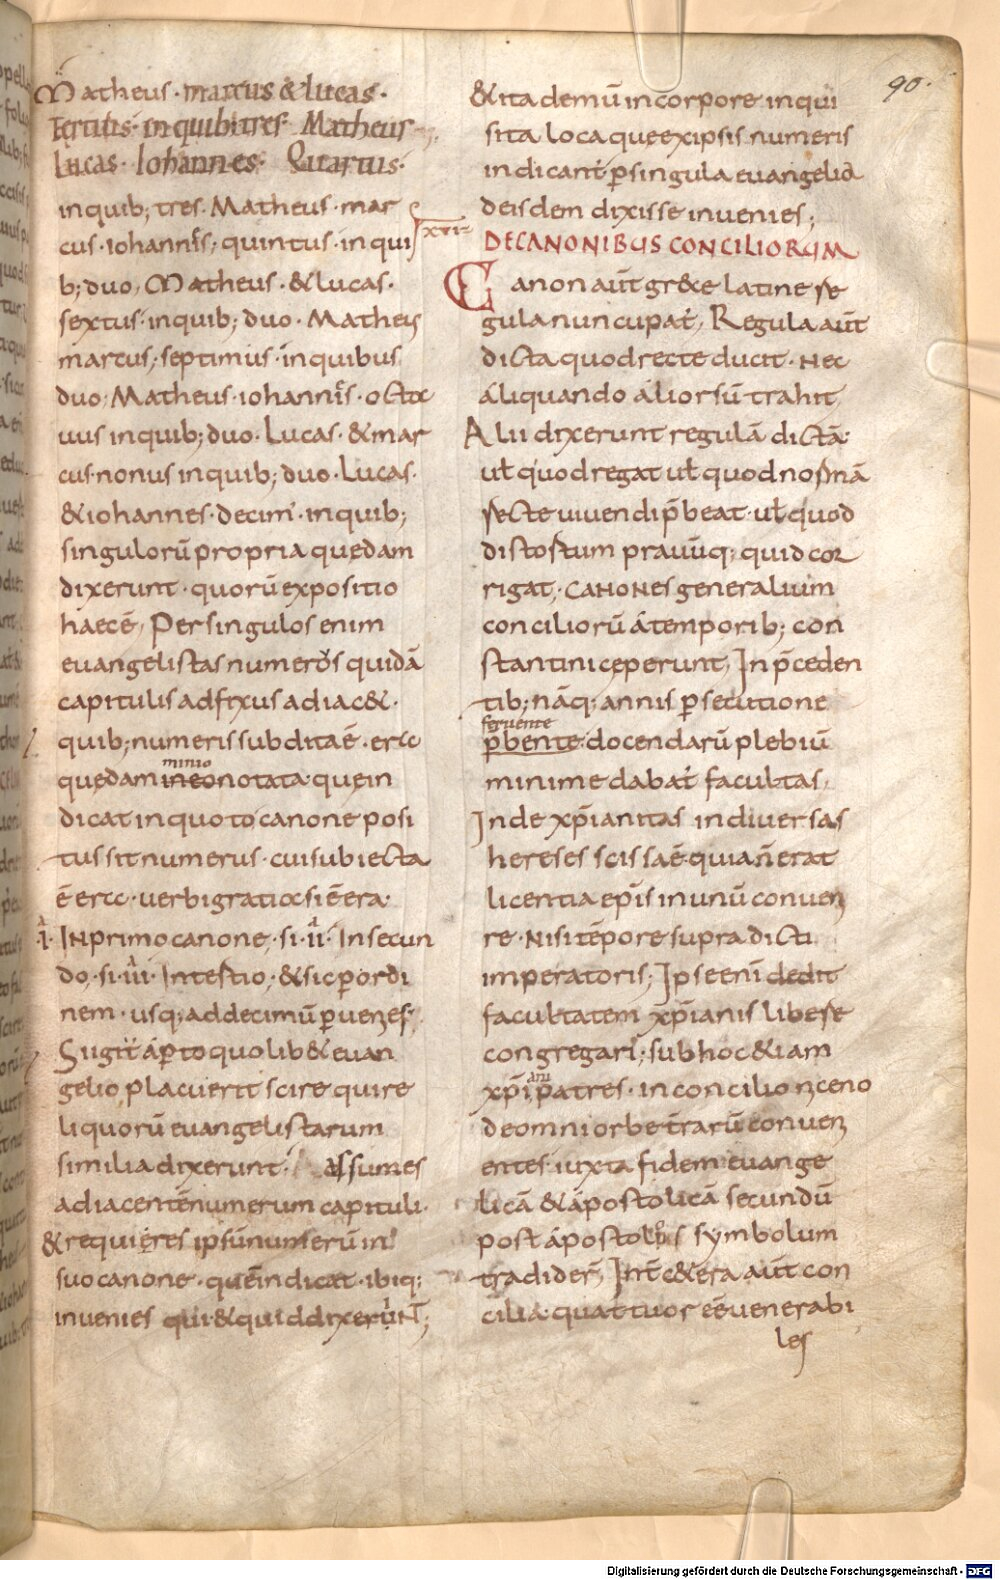 90.
Matheus · marcus & lucas ·
Tertius · in quib; tres Matheus
Lucas · Iohannes · Quartus ·
in quib; tres · Matheus · mar
cus · iohannis; quintus · in qui
b; duo, Matheus · & lucas ·
sextus · in quib; duo · Matheus
marcus; septimus · in quibus
duo, Matheus · iohannis · octa
uus in quib; duo · Lucas · & mar
cus · nonus in quib; duo · Lucas ·
& iohannes · decim' · in quib;
singulorū propria quędam
dixerunt · quorū expositio
haec ē, Per singulos enim
euangelistas numerŏs quidā
capitulis adfixus adiac& ·
quib; numeris subdita ē · ercc
minio
quędam in eo notata · que in
dicat in quoto canone posi
tus sit numerus · cui subiecta
ē ercc · uerbi gratia si ē era ·
·I· IN primo canone, si · II · In secun
do, si · III · In testio, & sic p ordi
nem · usq; ad decimū puenies,
Si igit' ap̄to quolib& euan
gelio placuerit scire qui re
liquorū euangelistarum
similia dixerunt · assumes
adiacentē numerum capituli ·
& requieres ipsū numerū in
suo canone · quē indicat · ibiq;
inuenies qui · & quid dixerunt;
& ita demū in corpore inqui
sita loca que ex ipsis numeris
indicant' p singula euangelia
de isdem dixisse inuenies;
XVI
DE CANONIBUS CONCILIORUM
Canon aūt gr&ce latine re
gula nuncupat', Regula aūt
dicta quod recte ducit · Nec
aliquando aliorsū trahit,
Alii dixerunt regulā dictā
ut quod regat ut quod normā
recte uiuendi p̄beat · ut quod
distortum prauūq; quid cor
rigat, · CANONES generalium
conciliorū á temporib; con
stantini ceperunt, In p̄ceden
tib; nāq; annis psecutione
feruente
p̄bente · docendarū plebiū
minime dabat' facultas,
Inde xp̄ianitas in diuersas
hereses scissa ē · quia ñ erat
licentia ep̄is in unū conueni
re · Nisi tēpore supradicti
imperatoris, Ipse enī dedit
facultatem xp̄ianis libere
congregari, sub hoc & iam
xp̄i patres · in concilio nceno
de omni orbe t̄rarū conueni
entes · iuxta fidem euange
licā & apostolicā secundū
post apostolos symbolum
tradider̄, Int̄ c&era aūt con
cilia · quattuor eē uenerabi
les
Digitalisierung gefördert durch die Deutsche Forschungsgemeinschaft - DFG